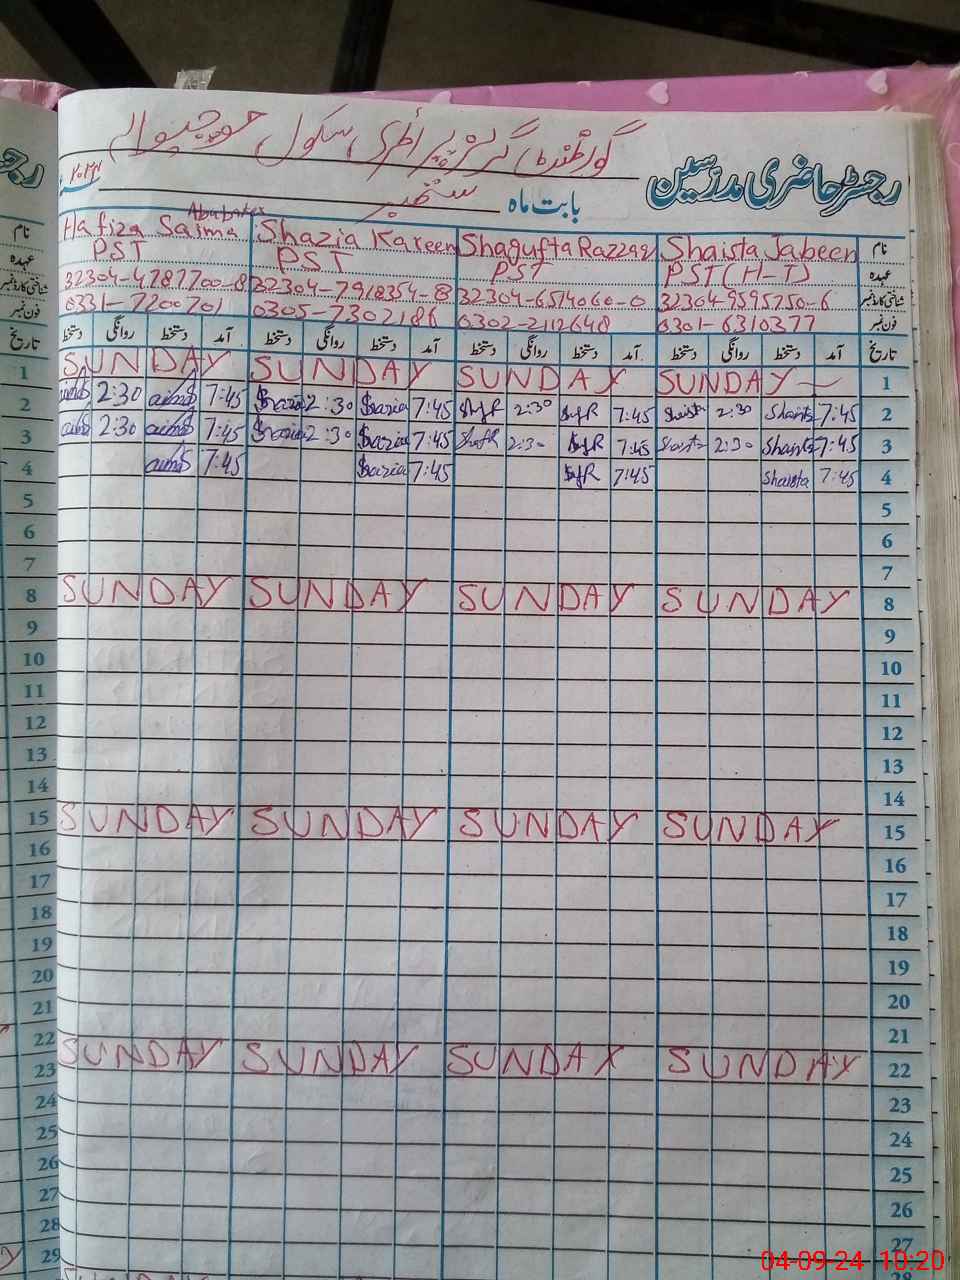 گورنمنٹ گرلز پرائمری سکول
رجسٹر حاضری مدرسین
بابت ماہ ستمبر
۲۰۲۴
نام Shaista Jabeen Shagufta Razzaq Shazia Kareem Hafiza Saima Ababaker نام
عہدہ PST(H-T) PST PST PST عہدہ
شناختی کارڈ نمبر 32304-9595750-6 32304-6514060-0 32304-7918354-8 32304-4787700-8 شناختی کارڈ نمبر
فون نمبر 0301-6310377 0302-2112648 0305-7302186 0331-7200701 فون نمبر
تاریخ آمد دستخط روانگی دستخط آمد دستخط روانگی دستخط آمد دستخط روانگی دستخط آمد دستخط روانگی دستخط تاریخ
1 SUNDAY SUNDAY SUNDAY SUNDAY 1
2 7:45 Shaista 2:30 Shaista 7:45 2:30 7:45 Shazia 2:30 Shazia 7:45 2:30 2
3 7:45 Shaista 2:30 Shaista 7:45 2:30 7:45 Shazia 2:30 Shazia 7:45 2:30 3
4 7:45 Shaista 7:45 7:45 Shazia 7:45 4
5 5
6 6
7 7
8 SUNDAY SUNDAY SUNDAY SUNDAY 8
9 9
10 10
11 11
12 12
13 13
14 14
15 SUNDAY SUNDAY SUNDAY SUNDAY 15
16 16
17 17
18 18
19 19
20 20
21 21
22 SUNDAY SUNDAY SUNDAY SUNDAY 22
23 23
24 24
25 25
26 26
27 27
28
29
04-09-24 10:20